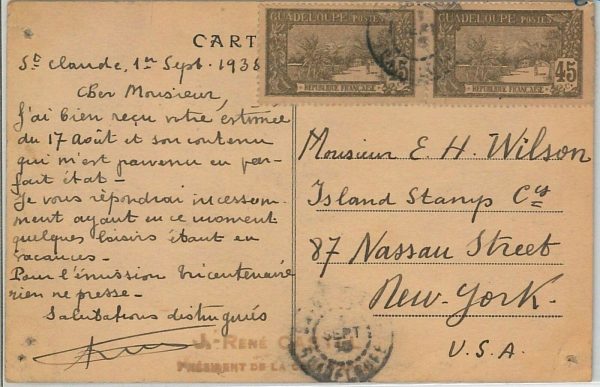 CART
GUADELOUPE POSTES
45
RÉPUBLIQUE FRANÇAISE
GUADELOUPE POSTES
45
RÉPUBLIQUE FRANÇAISE
St Claude, 1er Sept. 1938
Cher Monsieur,
J'ai bien reçu votre estimée
du 17 Août et son contenu
qui m'est parvenu en par-
fait état -
Je vous répondrai incessam-
ment ayant en ce moment
quelques loisirs étant en
vacances -
Pour l'émission tricentenaire
rien ne presse -
Salutations distinguées
J. RENÉ
PRÉSIDENT DE LA
Monsieur E. H. Wilson
Island Stamp Co
87 Nassau Street
New-York.
U.S.A.
SEPT
GUADELOUPE